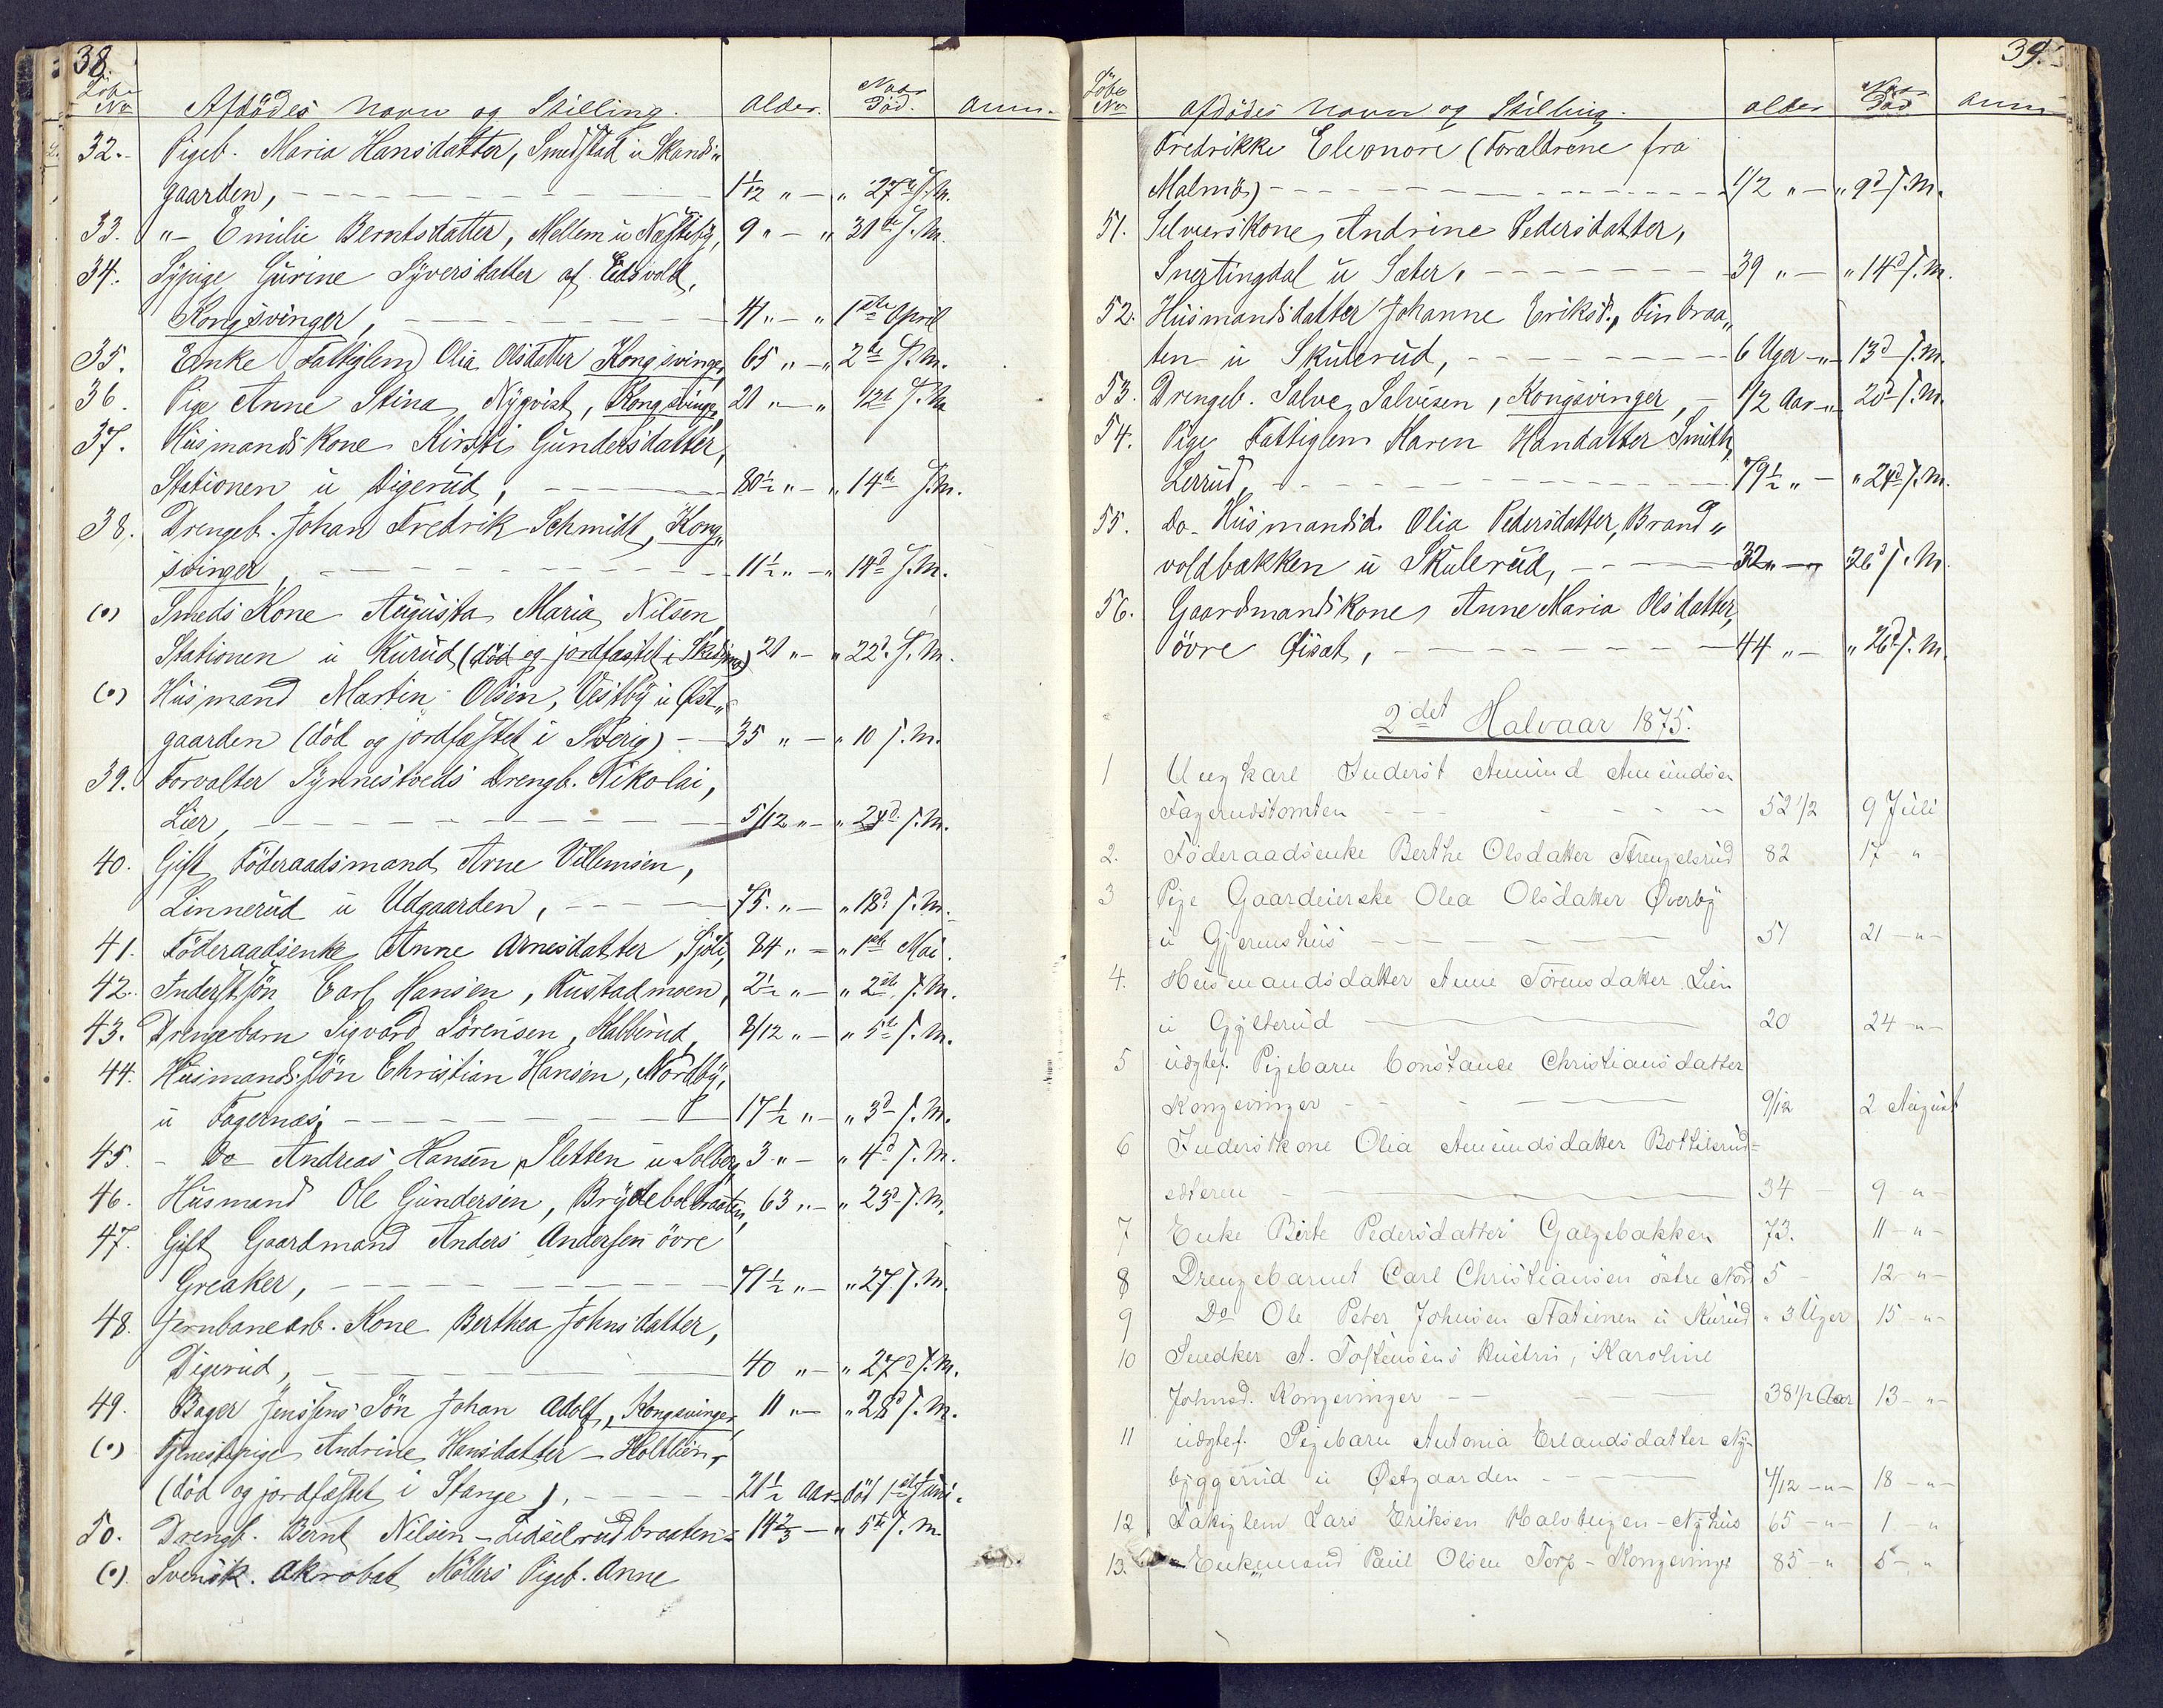 38.
Løbe No Afdødes Navn og Stilling. Alder. Naar Død. Anm.
32. Pigeb. Maria Hansdatter, Smedstad u Skands„
gaarden, 1 1/12 „ — „ 27de f. M.
33. „– Emilie Berntsdatter, Mellem u Næsteby, 9 „ — „ 31te f. M.
34. Sypige Gurine Syversdatter af Eidsvold,
Kongsvinger, 41 „ — „ 1ste April
35. Enke Fattiglem Olia Olsdatter Kongsvinger, 65 „ — „ 2de f. M.
36. Pige Anne Stina Nyqvist, Kongsvinger, 21 „ — „ 12te f. M.
37. Husmandskone Kirsti Gundersdatter,
Stationen u Digerud, 80½ „ — „ 14de f. M.
38. Drengeb. Johan Fredrik Schmidt, Kong„
svinger, 11½ „ — „ 14d f. M.
(0) Smeds Kone Augusta Maria Nilsen,
Stationen u Kurud (død og jordfæstet i Skedsmo) 21 „ — „ 22d. f. M.
(0) Husmand Martin Olsen, Vestby u Øst„
gaarden (død og jordfæstet i Sverig) 35 „ — „ 10 f. M.
39. Forvalter Synnestvedts Drengb. Nikolai,
Lier, 5/12 „ — „ 24d. f. M.
40. Gift Föderaadsmand Arne Villemsen,
Linnerud u Udgaarden, 75. „ — „ 18d. f. M.
41. Föderaadsenke Anne Arnesdatter, Sjöli, 84 „ — „ 1ste Mai.
42. Inderstsön Carl Hansen, Rustadmoen, 2½ „ — „ 2de f. M.
43. Drengebarn Sigvard Sörensen, Kabberud, 8/12 „ — „ 5te f. M.
44. Husmandssön Christian Hansen, Nordby,
u Fagernæs, 17½ „ — „ 3d f. M.
45. – Do Andreas Hansen, Sletten u Solberg, 3 „ — „ 4d f. M.
46. Husmand Ole Gundersen, Brydebolbraaten, 63 „ — „ 23d f. M.
47. Gift Gaardmand Anders Andersen övre
Greaker, 71½ „ — „ 27. f. M.
48. Jernbanearb. Kone Berthea Johnsdatter,
Digerud, 40 „ — „ 27d f. M.
49. Bager Jenssens Sön Johan Adolf, Kongsvinger, 11 „ — „ 28d f. M.
(0) Tjenestepige Andrine Hansdatter – Holtlien,
(död og jordfæstet i Stange), 21½ Aar död 1ste Juni.
50. Drengb. Bernt Nilsen – Lidselrudbraaten 14 2/3 — „ 5te f. M
(0). Svensk. Akrobat Möllers Pigeb. Anne
39.
Løbe No Afdødes Navn og Stilling. Alder Naar Død Anm
Fredrikke Eleonore (Forældrene fra
Malmö) 1/2 „ — „ 9d f. M.
51. Selveierskone Andrine Pedersdatter,
Snertingdal u Sæter, 39 „ — „ 14d f. M.
52. Husmandsdatter Johanne Eriksd., Finbraa„
ten u Skulerud, 6 Uger „ 13d f. M.
53. Drengeb. Salve Salvesen, Kongsvinger, 1/2 Aar „ 20d f. M.
54. Pige Fattiglem Karen Handatter Smith,
Lerrud, 79½ „ — „ 24d f. M.
55. Do Husmandsd. Olia Pedersdatter, Brand„
voldbakken u Skulerud, 32 „ — „ 26d f. M.
56. Gaardmandskone Anne Maria Olsdatter,
övre Öisæt, 44 „ — „ 26d f. M.
2det Halvaar 1875.
1 Ungkarl Inderst Amund Amundsen
Fagerudstomten 52 1/2 9 Juli
2. Föderaadsenke Berthe Olsdatter Strengelsrud 82 17 „
3 Pige Gaardeierske Olea Olsdatter Överby
u Gjermshus 51 21 – „ –
4. Husmandsdatter Anne Törensdatter Lien
u Gylterud 20 24 – „ –
5 udgtef. Pigebarn Constance Christiansdatter
Kongsvinger 9/12 2 August
6 Inderstkone Olia Amundsdatter Bottilsrud=
eteren 34 9 „
7 Enke Birte Pedersdatter Galgebakken 73. 11 – „ –
8 Drengebarnet Carl Christiansen östre Nord 5 – 12 – „ –
9 Do Ole Peter Johnsen Stationen u Kurud „ 3 Uger 15 – „ –
10 Snedker A. Tostensens Hustru, Karoline
Johnsd. Kongsvinger 38 1/2 Aar 13 – „ –
11 udgtef. Pigebarn Antonia Erlandsdatter Ny=
byggerud u Östgaarden 4/12 – „ – 18 – „ –
12 Fattiglem Lars Eriksen – Nyhus 65 – „ – 1 „
13. Enkemand Paul Olsen Torp – Kongsvinger 85 – „ 5 – „